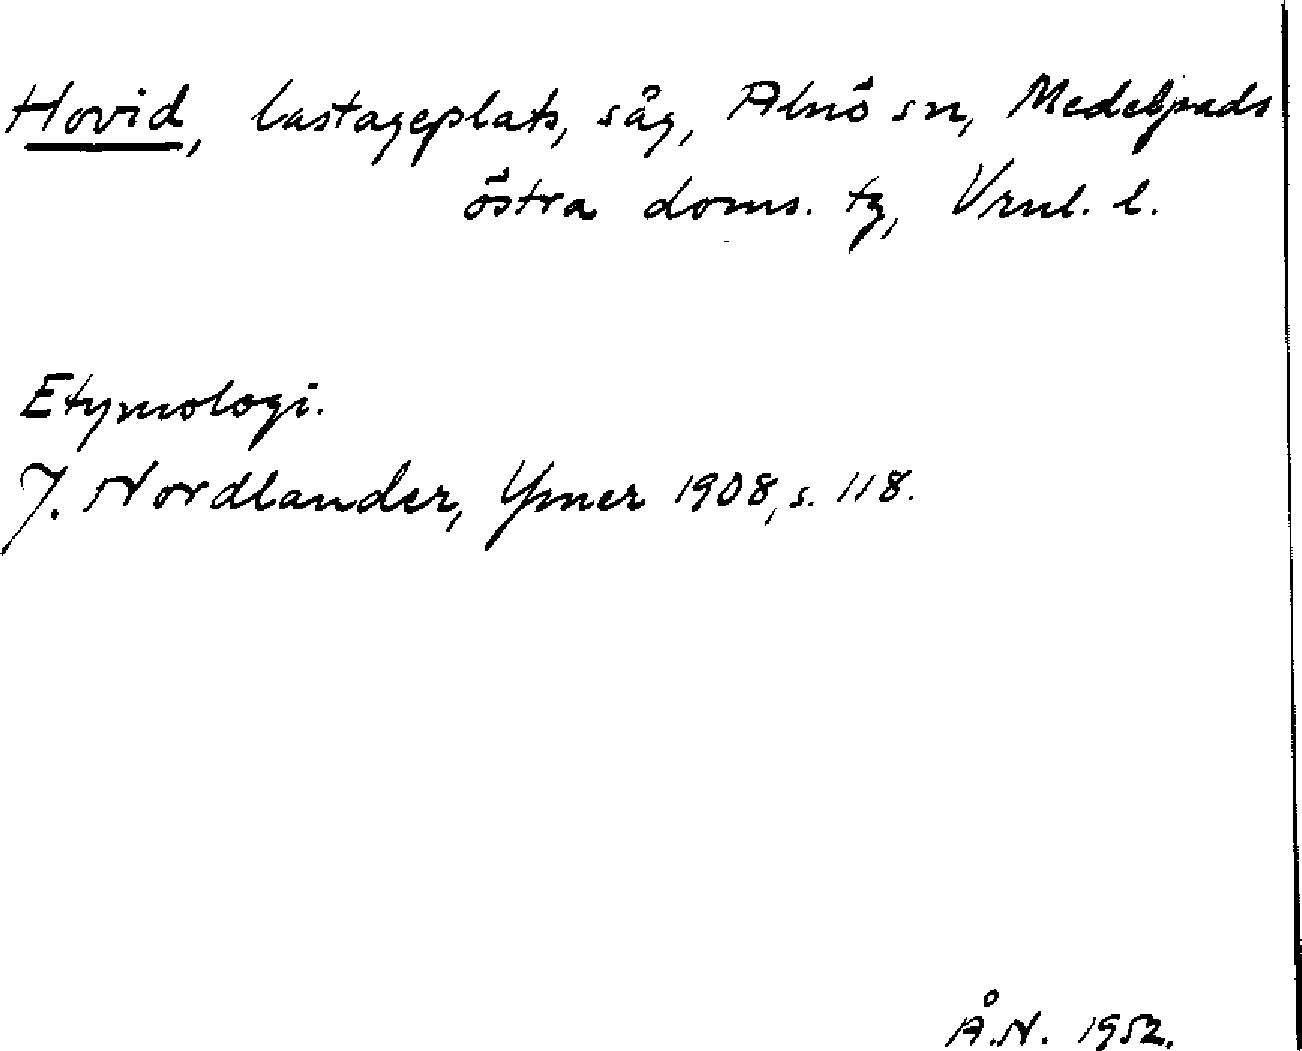 Hovid, lastageplats, såg, Alnö sn, Medelpads
östra doms. tg, Vrnl. l.
Etymologi.
J. Nordlander, Ymer 1908, s. 118.
Å.N. 1952.